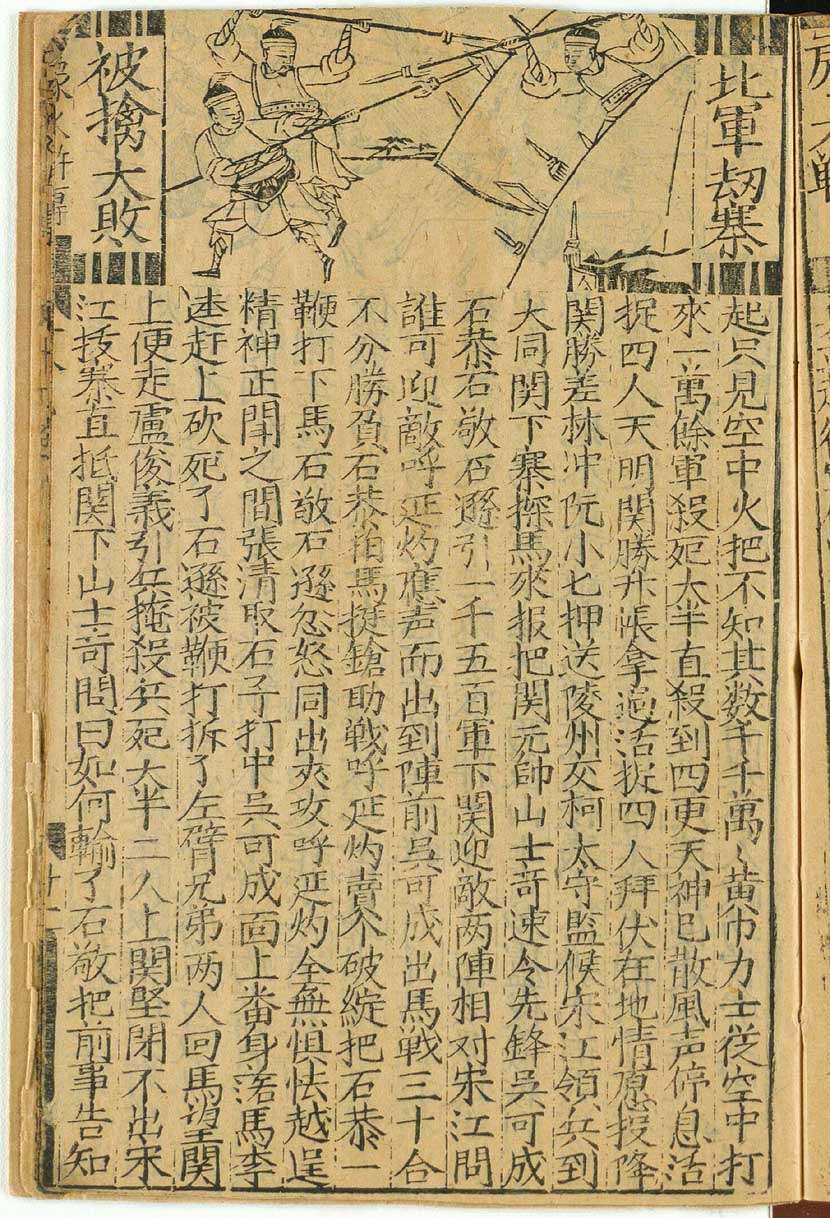 北軍刼寨
被擒大敗
起只見空中火把不知其数千千萬〻黄巾力士従空中打
來一萬餘軍殺死大半直殺到四更天神已散風声停息活
捉四人天明関勝升帳拿過活捉四人拜伏在地情愿投降
関勝差林冲阮小七押送陵州交柯太守監候宋江領兵到
大同関下寨探馬來报把関元帥山士竒速令先鋒吳可成
石恭石敬石遜引一千五百軍下関迎敵两陣相对宋江問
誰可迎敵呼延灼應声而出到陣前吳可成出馬戦三十合
不分勝負石恭拍馬挺鎗助戦呼延灼賣个破綻把石恭一
鞭打下馬石敬石遜忿怒同出夾攻呼延灼全無惧怯越逞
精神正閗之間張清取石子打中吳可成面上番身落馬李
逵赶上砍死了石遜被鞭打拆了左臂兄弟两人回馬望関
上便走盧俊義引兵掩殺兵死大半二人上関堅閉不出宋
江拔寨直抵関下山士竒問曰如何輸了石敬把前事告知
水滸傳
廿二